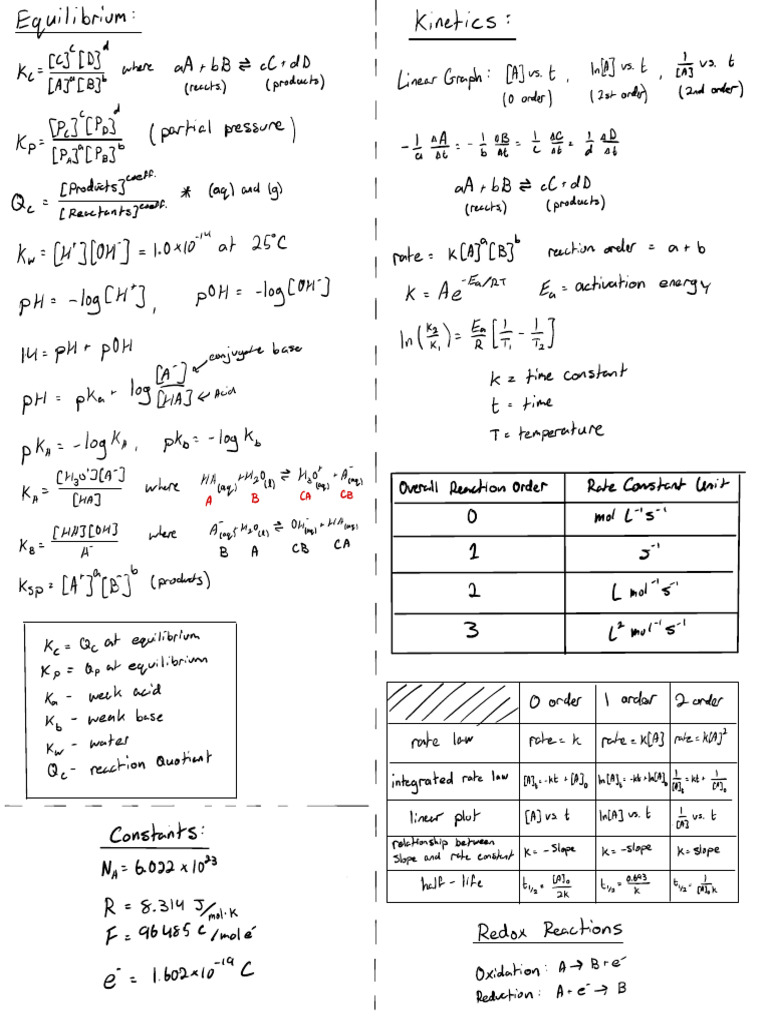 Equilibrium:
Kc = [C]^c [D]^d / [A]^a [B]^b where aA + bB ⇌ cC + dD
(reacts.) (products)
Kp = [Pc]^c [PD]^d / [PA]^a [PB]^b (partial pressure)
Qc = [Products]^coeff. / [Reactants]^coeff. * (aq) and (g)
Kw = [H⁺][OH⁻] = 1.0×10⁻¹⁴ at 25°C
pH = -log[H⁺], pOH = -log[OH⁻]
14 = pH + pOH
pH = pKa + log [A⁻] / [HA] ← conjugate base ← Acid
pKA = -log KA, pKb = -log Kb
KA = [H3O⁺][A⁻] / [HA] where HA(aq) + H2O(l) ⇌ H3O⁺(aq) + A⁻(aq)
A B CA CB
KB = [HA][OH] / A⁻ where A⁻(aq) + H2O(l) ⇌ OH⁻(aq) + HA(aq)
B A CB CA
Ksp = [A⁺]^a [B⁻]^b (products)
Kc = Qc at equilibrium
Kp = Qp at equilibrium
Ka - weak acid
Kb - weak base
Kw - water
Qc - reaction Quotient
Constants:
NA = 6.022 × 10²³
R = 8.314 J/mol·K
F = 96485 C/mol e⁻
e⁻ = 1.602×10⁻¹⁹ C
Kinetics:
Linear Graph: [A] vs. t, ln[A] vs. t, 1/[A] vs. t
(0 order) (1st order) (2nd order)
-1/a ΔA/Δt = -1/b ΔB/Δt = 1/c ΔC/Δt = 1/d ΔD/Δt
aA + bB ⇌ cC + dD
(reacts) (products)
rate = K[A]^a [B]^b reaction order = a + b
K = Ae^-Ea/RT Ea = activation energy
ln(K2/K1) = Ea/R [1/T1 - 1/T2]
K = time constant
t = time
T = temperature
Overall Reaction Order Rate Constant Unit
0 mol L⁻¹ s⁻¹
1 s⁻¹
2 L mol⁻¹ s⁻¹
3 L² mol⁻¹ s⁻¹
0 order 1 order 2 order
rate law rate = k rate = k[A] rate = k[A]²
integrated rate law [A]t = -kt + [A]0 ln[A]t = -kt + ln[A]0 1/[A]t = kt + 1/[A]0
linear plot [A] vs. t ln[A] vs. t 1/[A] vs. t
relationship between
slope and rate constant k = -slope k = -slope k = slope
half-life t1/2 = [A]0/2k t1/2 = 0.693/k t1/2 = 1/[A]0k
Redox Reactions
Oxidation: A → B + e⁻
Reduction: A + e⁻ → B